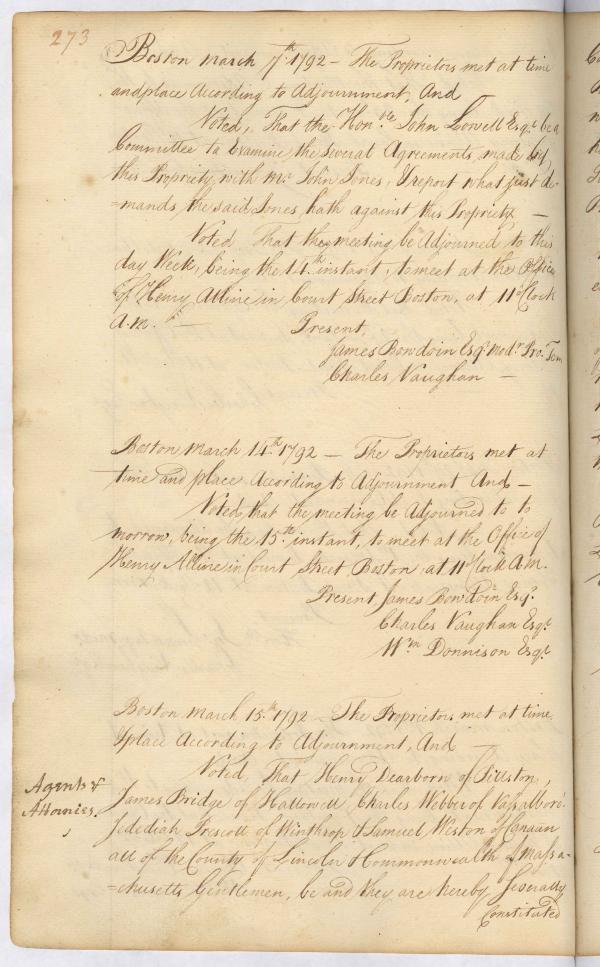 273
Boston March 7th 1792 – The Proprietors met at time
and place According to Adjournment, And
Voted, That the Honble John Lowell Esqr be a
Committee to Examine the Several Agreements made by
this Propriety with Mr John Jones, & report what just de-
=mands the said Jones hath against this Propriety –
Voted That the meeting be Adjourned to this
day Week, being the 14th instant, to meet at the Office
of Henry Alline in Court Street Boston, at 11 oClock
A.M. –
Present,
James Bowdoin Esqr Modr Pro. Tem
Charles Vaughan –
Boston March 14th 1792 – The Proprietors met at
time and place According to Adjournment And –
Voted, that the meeting be Adjourned to to
morrow, being the 15th instant, to meet at the Office of
Henry Alline in Court Street Boston at 11 oClock A.M.
Present, James Bowdoin Esqr
Charles Vaughan Esqr
Wm Donnison Esqr
Boston March 15th 1792 – The Proprietors met at time
& place According to Adjournment, And –
Voted, That Henry Dearborn of Pittston,
Agents &
Attornies.
James Bridge of Hallowell Charles Webber of Vassalboro'
Jedediah Prescott of Winthrop & Samuel Weston of Canaan
all of the County of Lincoln & Commonwealth of Massa-
=chusetts Gentlemen, be and they are hereby Severally
Constituted